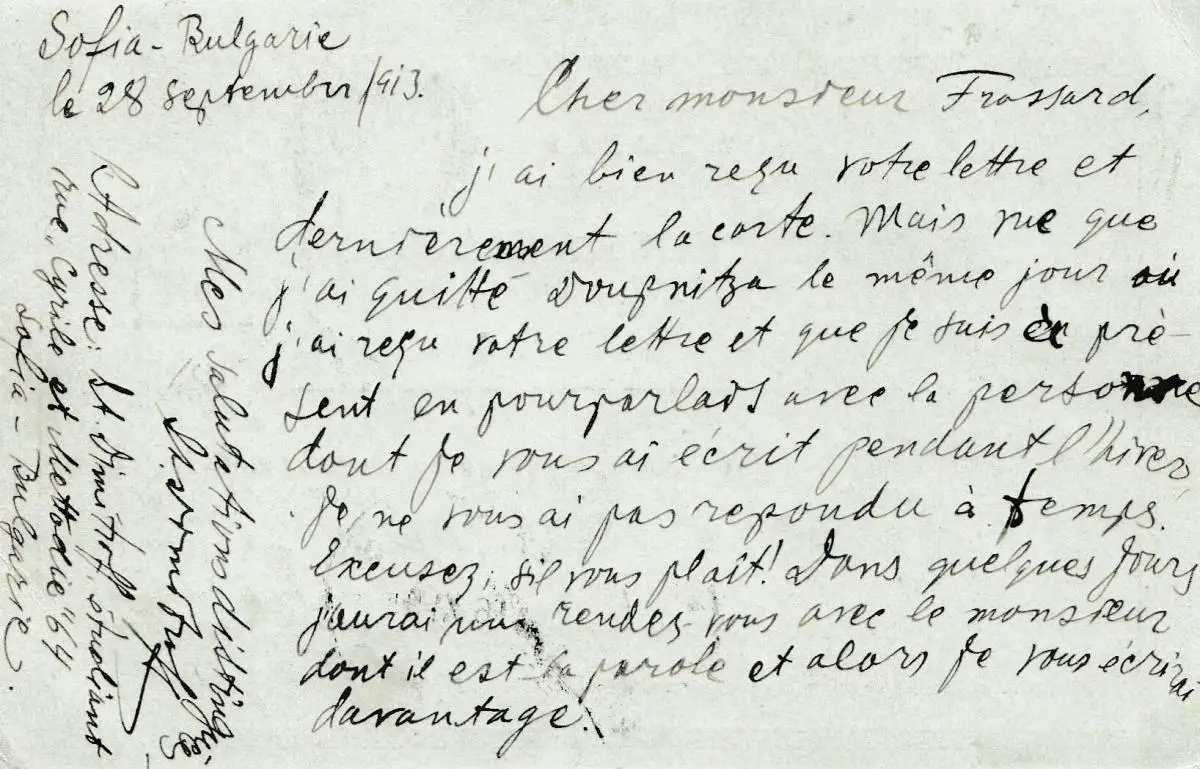 Sofia - Bulgarie
le 28 september 1913.
Cher monsieur Frossard,
j'ai bien reçu votre lettre et
dernièrement la carte. Mais vue que
j'ai quitté Doupnitza le même jour où
j'ai reçu votre lettre et que je suis en prè-
sent en pourparlais avec la personne
dont je vous ai écrit pendant l'hiver,
je ne vous ai pas repondu à temps.
Excusez, sil vous plaît! Dans quelques jours
j'aurai un rendez-vous avec le monsieur
dont il est la parole et alors je vous écrirai
davantage.
Mes salutations distinguées
St. Dimitroff
Adresse: St. Dimitroff, étudiant
rue „Cyrile et Mettodie" 64
Sofia - Bulgarie.